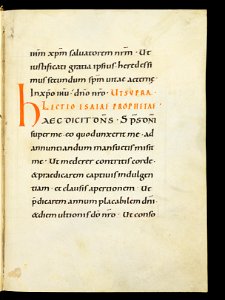 ihm xpm salvatorem nrm. Ut
iustificati gratia ipsius. heredes si
mus secundum spem vitae aeterne
In xpo ihu dno nro. UT SUPRA
LECTIO ISAIAE PROPHETAE
HAEC DICIT DNS. Sps dni
super me. eo quod unxerit me. ad
annuntiandum mansuetis misit
me. Ut mederer contritis corde.
& praedicarem captivis indulgen
tiam. et clausis apertionem. Ut
pdicarem annum placabilem dni
& diem ultionis do nro. Ut conso